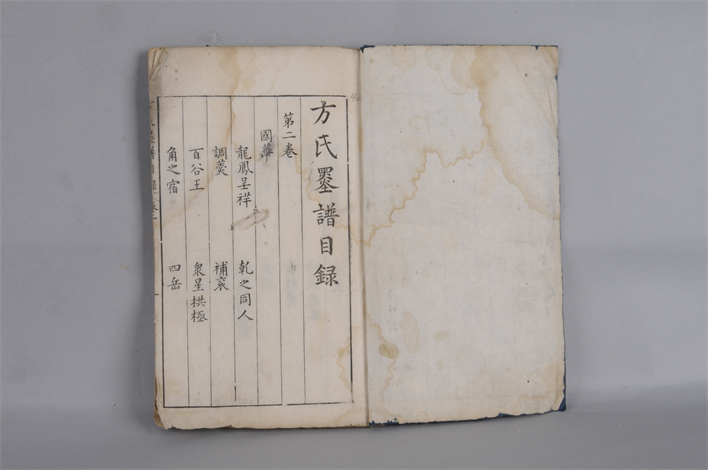 方氏墨譜目録
第二卷
國華
龍鳳呈祥 乾之同人
調羹 補衮
百谷王 衆星拱極
角之宿 四岳